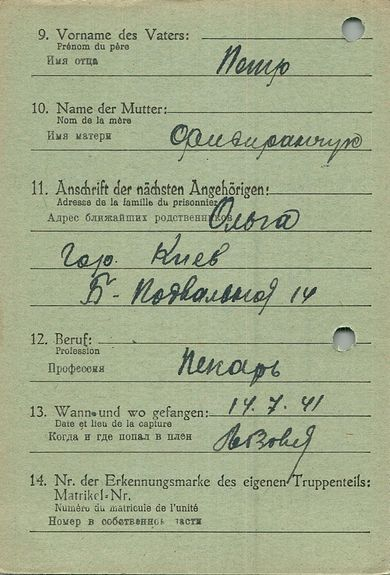 9. Vorname des Vaters:
Prénom du père
Имя отца Петр
10. Name der Mutter:
Nom de la mère
Имя матери
11. Anschrift der nächsten Angehörigen:
Adresse de la famille du prisonnier
Адрес ближайших родственников Ольга
Гор. Киев
Б-Подвальная 14
12. Beruf:
Profession
Профессия Пекарь
13. Wann und wo gefangen: 14.7.41
Date et lieu de la capture
Когда и где попал в плен
14. Nr. der Erkennungsmarke des eigenen Truppenteils:
Matrikel-Nr.
Numéro du matricule de l'unité
Номер в собственной части